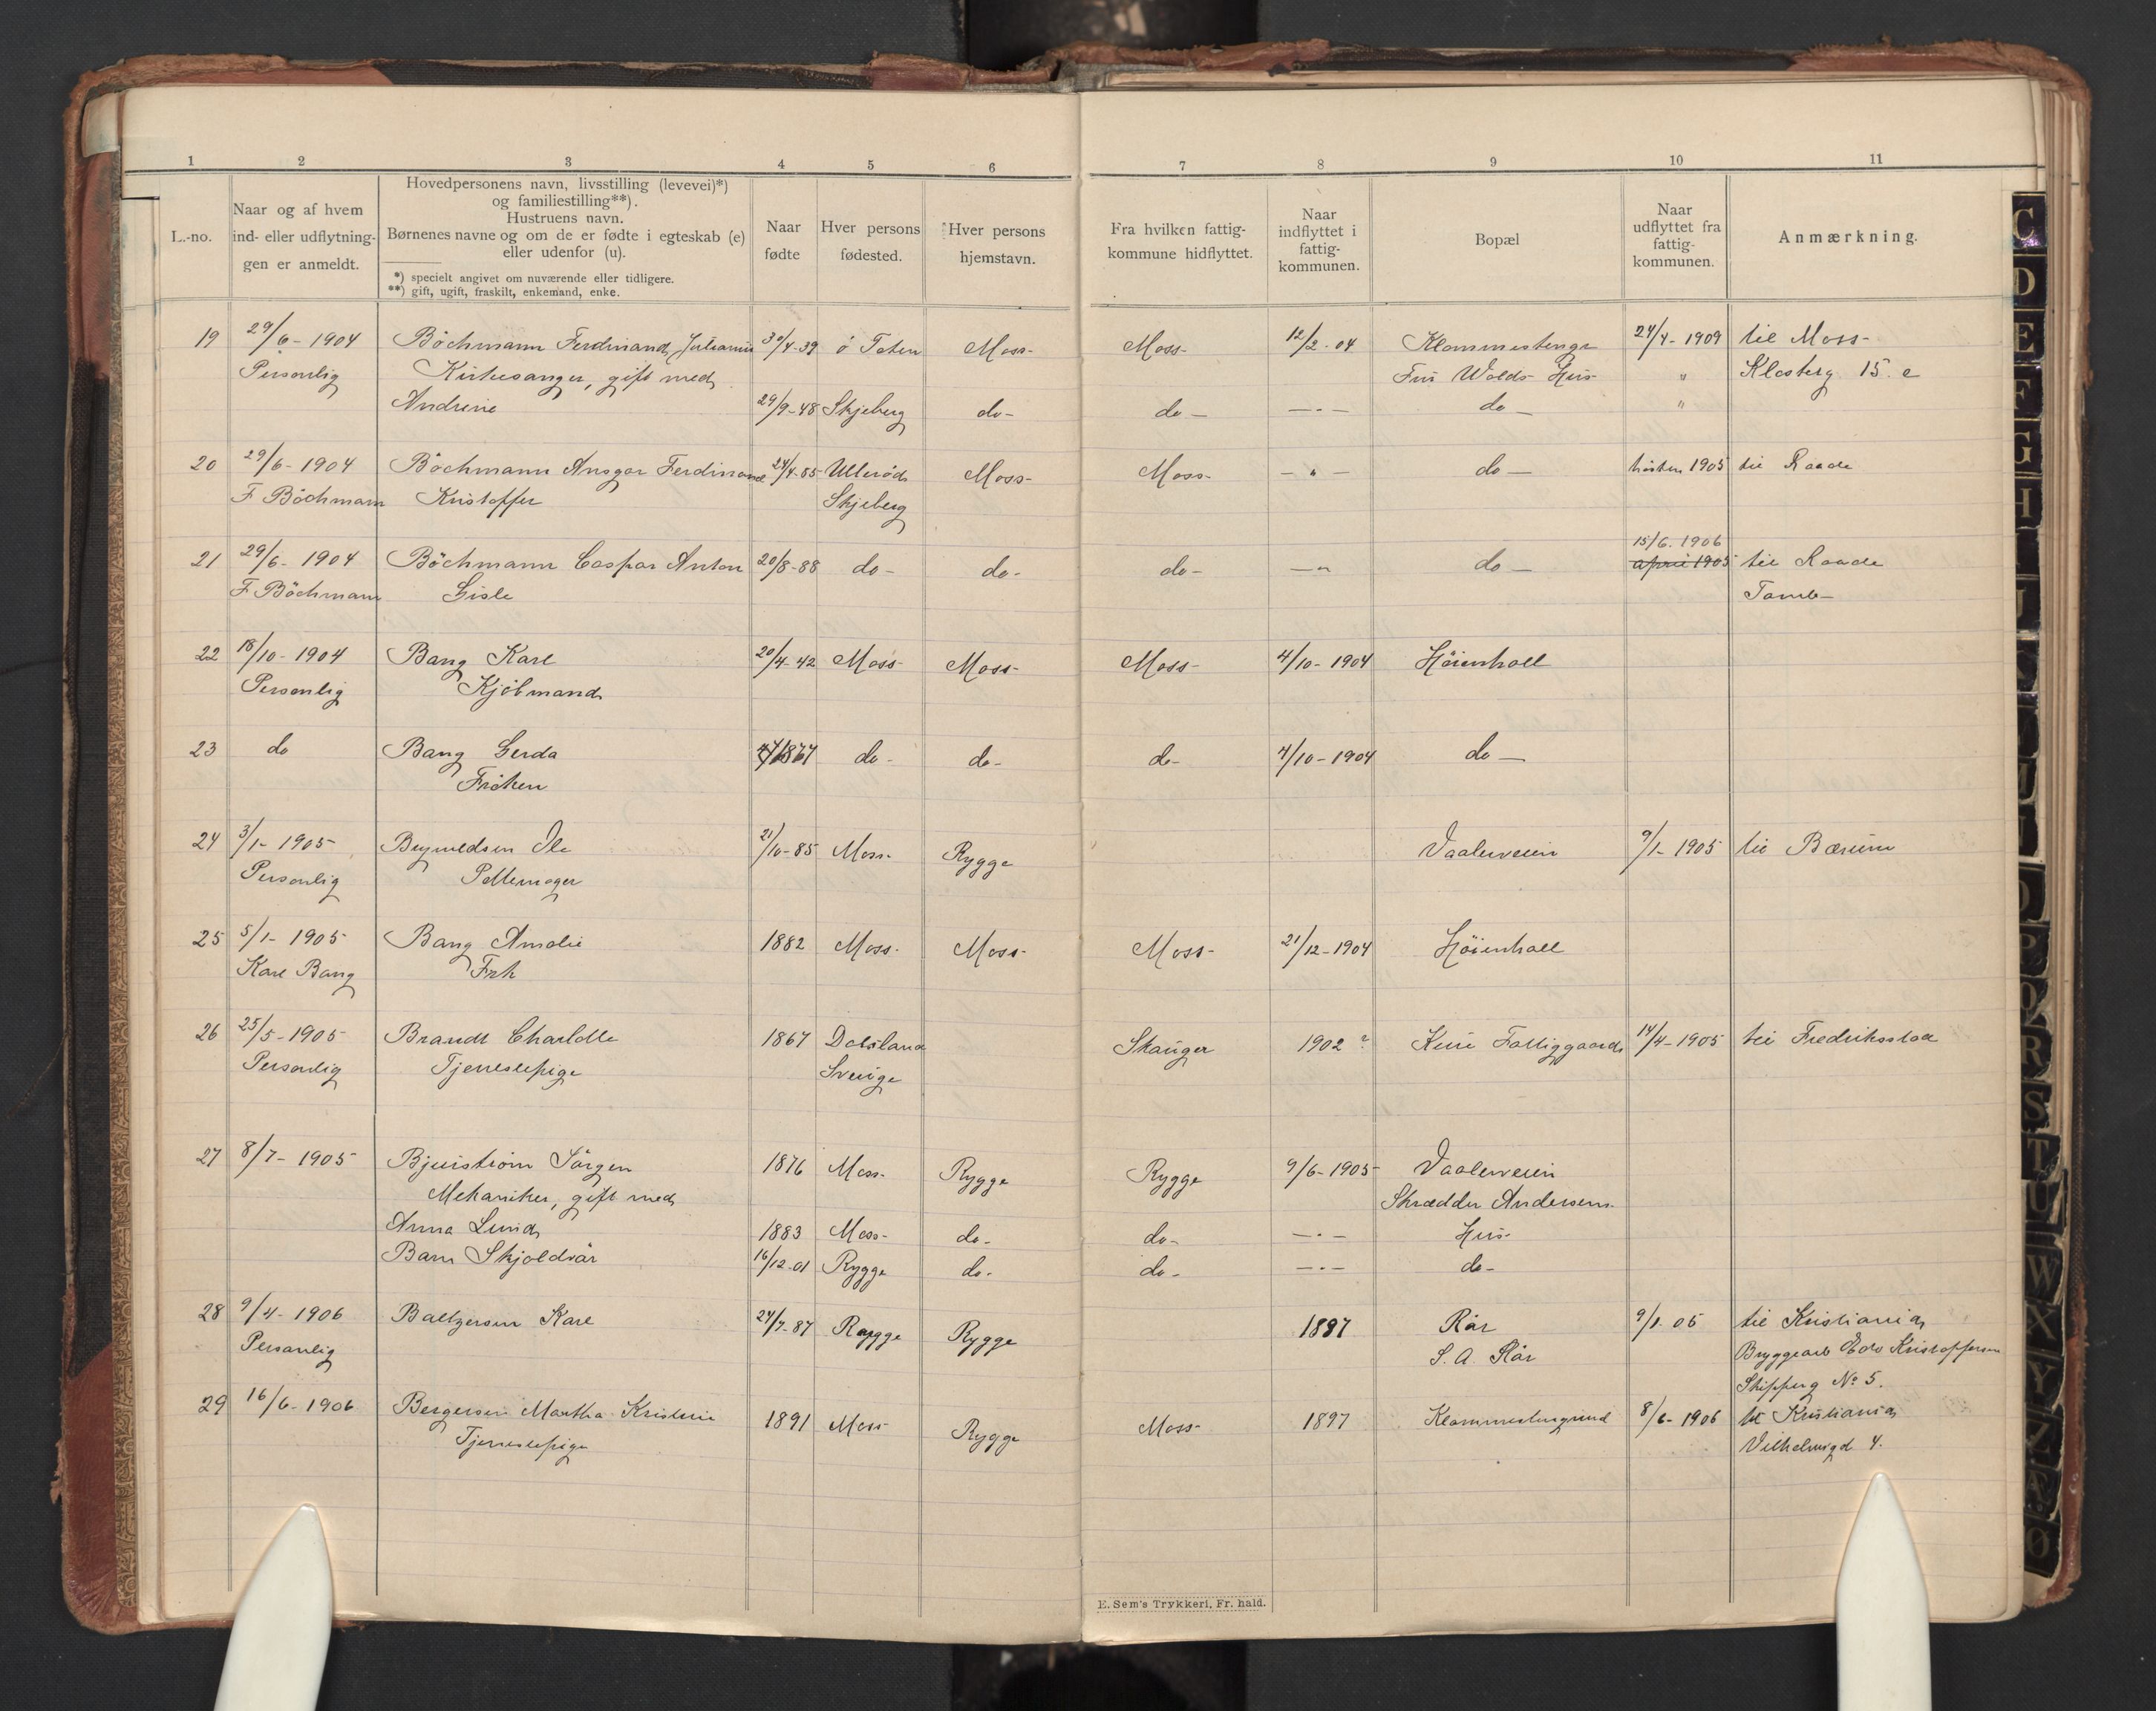 1 2 3 4 5 6 7 8 9 10 11
L.-no.
Naar og af hvem
ind- eller udflytning-
gen er anmeldt.
Hovedpersonens navn, livsstilling (levevei)*)
og familiestilling**).
Hustruens navn.
Børnenes navne og om de er fødte i egteskab (e)
eller udenfor (u).
*) specielt angivet om nuværende eller tidligere.
**) gift, ugift, fraskilt, enkemand, enke.
Naar
fødte
Hver persons
fødested.
Hver persons
hjemstavn.
Fra hvilken fattig-
kommune hidflyttet.
Naar
indflyttet i
fattig-
kommunen.
Bopæl
Naar
udflyttet fra
fattig-
kommunen.
Anmærkning.
19 29/6- 1904 Böchmann Ferdinand 30/4-39 Ö Toten Moss- Moss- 12/2-04 24/4-1909 til Moss-
Personlig Kirkesanger, gift med Fru Wolds Hus " Klosterg 15.
Andrine 29/9-48 Skjeberg do- do- -"- do- "
20 29/6- 1904 Böchmann Ansgar Ferdinand 24/4-85 Ullerød Moss- Moss- -"- do- høsten 1905 til Raade
F Böchmann Kristoffer Skjeberg
15/6.1906
21 29/6- 1904 Böchmann Caspar Anton 20/8-88 do- do- do- -"- do- april 1905 til Raade
F Böchmann Gisle Tomb-
22 18/10-1904 Bang Karl 20/4-42 Moss- Moss- Moss- 4/10-1904 Höienhall
Personlig Kjöbmand
23 do Bang Gerda 1867 do- do- do- 4/10-1904 do-
Fröken
24 3/1-1905- Ole 21/10-85 Moss- Rygge Vaalerveien 9/1-1905 til Bærum
Personlig Pottemager
25 5/1-1905 Bang Amalie 1882 Moss- Moss- Moss- 21/12-1904 Höienhall
Karl Bang Frk
26 25/5-1905- Brandt Charlotte 1867 Dalsland 1902 ? Fattiggaard 14/4-1905 til Fredriksstad
Personlig Tjenestepige Sverige
27 8/7-1905 Sörgen 1876 Moss- Rygge Rygge 9/6-1905- Vaalerveien
Mekaniker, gift med Skrædder Andersens
Anna Lund 1883 Moss- do- do- -"- Hus
Barn Skjoldvär 16/12-01 Rygge do- do- -"- do-
28 9/4-1906 Baltzersen Karl 24/7-87 Rygge Rygge 1887 Rör 9/1.06 til Kristiania
Personlig S. A. Rör Bryggearb Edv Kristoffersen
Skipperg No 5.
29 16/6-1906 Bergersen Martha Kristine 1891 Moss Rygge Moss- 1897 8/6-1906 til Kristiania
Tjenestepige 4.
E. Sem's Trykkeri, Fr. hald.
C
D
E
F
G
H
R
S
T
U
W
X
Y
Z
Ø